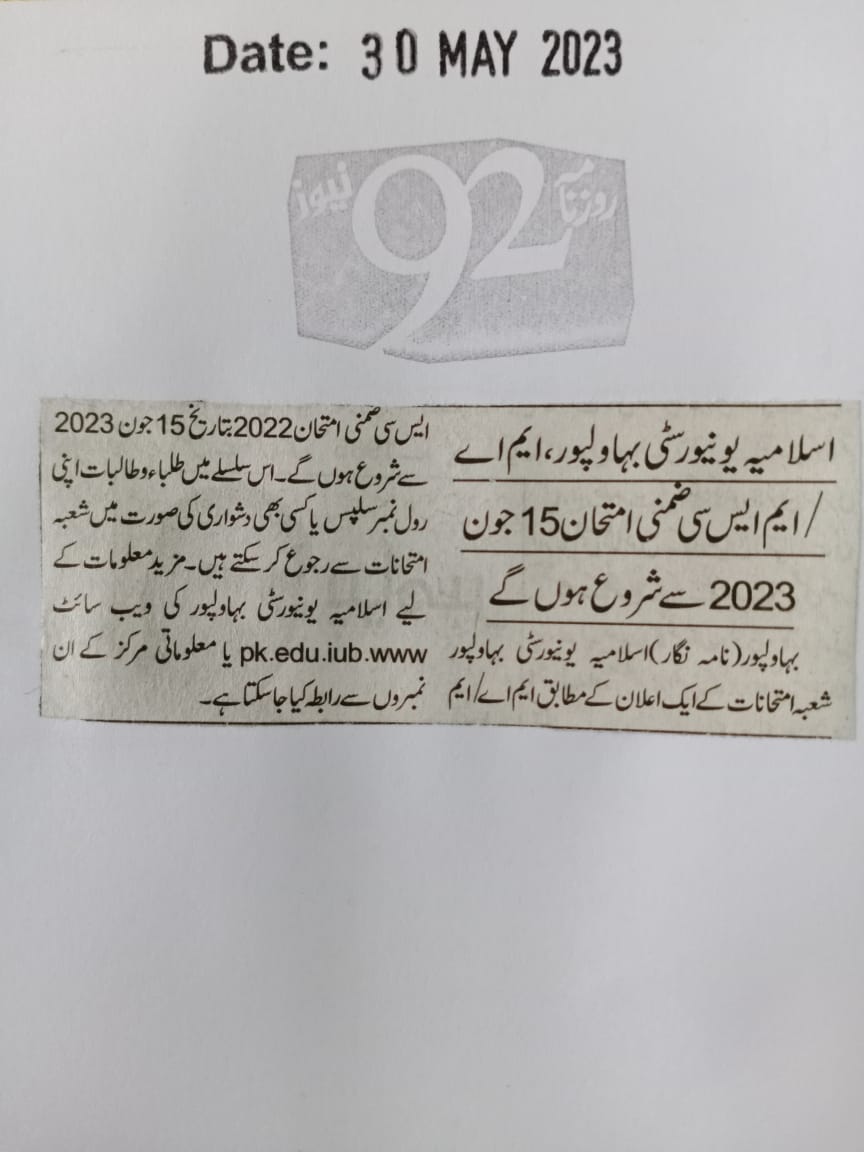 Date: 30 MAY 2023
روزنامہ 92 نیوز
اسلامیہ یونیورسٹی بہاولپور، ایم اے
/ایم ایس سی ضمنی امتحان 15 جون
2023 سے شروع ہوں گے
بہاولپور(نامہ نگار)اسلامیہ یونیورسٹی بہاولپور
شعبہ امتحانات کے ایک اعلان کے مطابق ایم اے/ایم
ایس سی ضمنی امتحان 2022 بتاریخ 15 جون 2023
سے شروع ہوں گے۔ اس سلسلے میں طلباء و طالبات اپنی
رول نمبر سلپس یا کسی بھی دشواری کی صورت میں شعبہ
امتحانات سے رجوع کر سکتے ہیں۔ مزید معلومات کے
لیے اسلامیہ یونیورسٹی بہاولپور کی ویب سائٹ
pk.edu.iub.www یا معلوماتی مرکز کے ان
نمبروں سے رابطہ کیا جا سکتا ہے۔